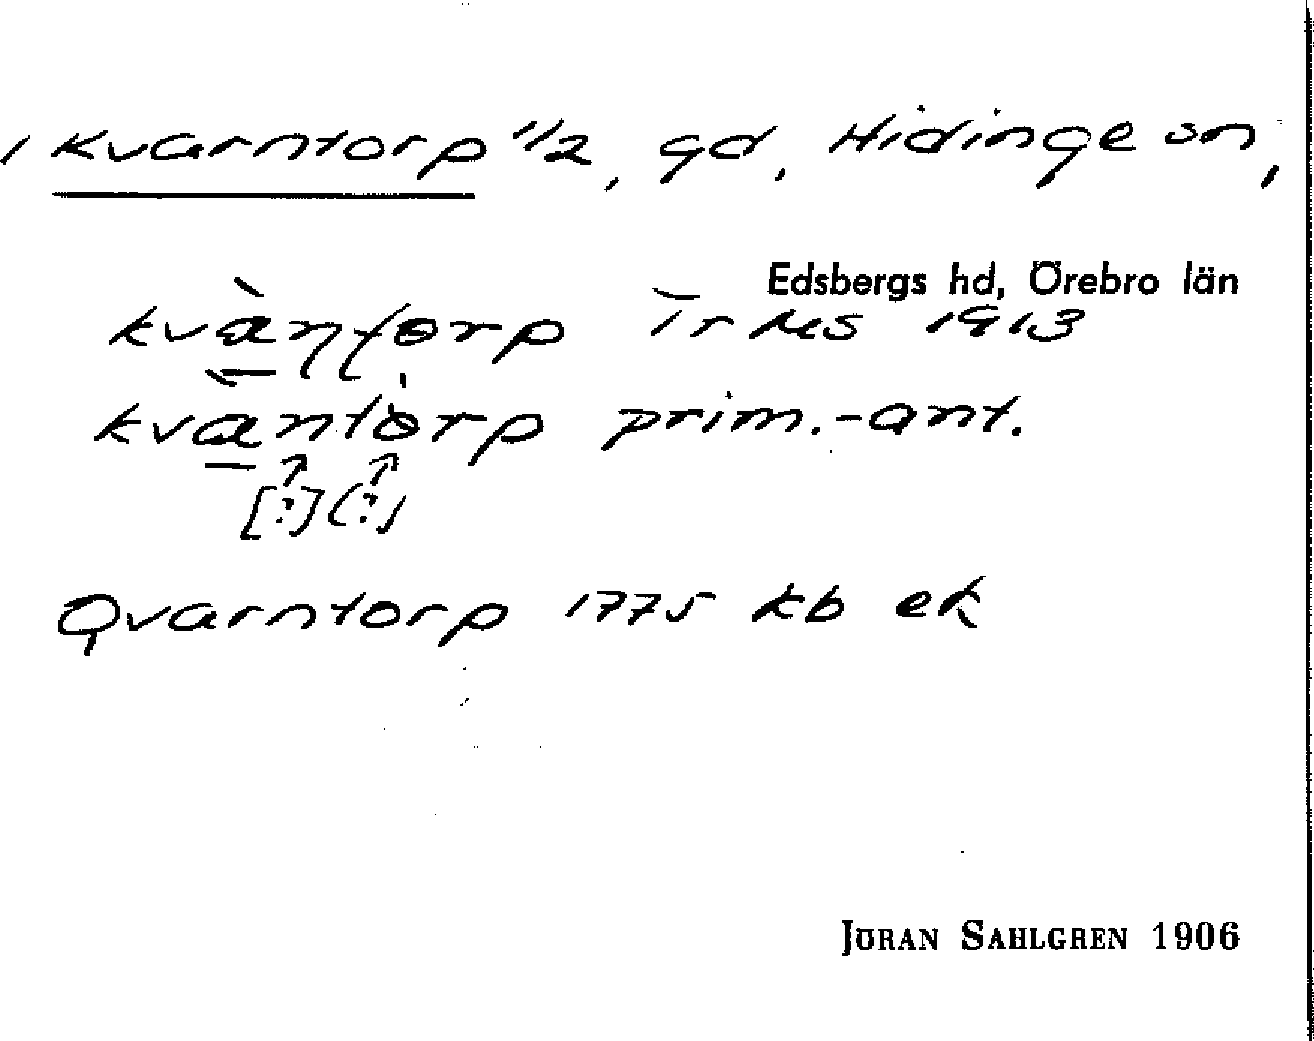 1 Kvarntorp 1/2, gd, Hidinge sn,
Edsbergs hd, Örebro län
kvàntorp Tr MS 1913
kvàntorp prim.-ant.
[?] (?)
Qvarntorp 1775 kb ek
JÖRAN SAHLGREN 1906